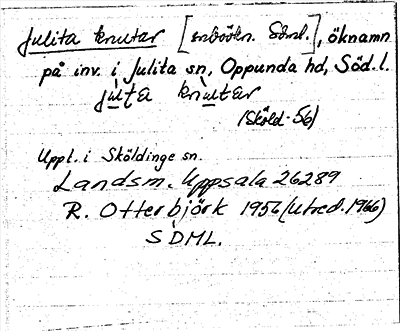 Julita knutar [inbökn. Sdml.], öknamn
på inv. i Julita sn, Oppunda hd, Söd.l.
julta knutar
(Sköld. 56)
Uppt. i Sköldinge sn.
Landsm. Uppsala 26289
R. Otterbjörk 1956 (Utred. 1966)
SDML.